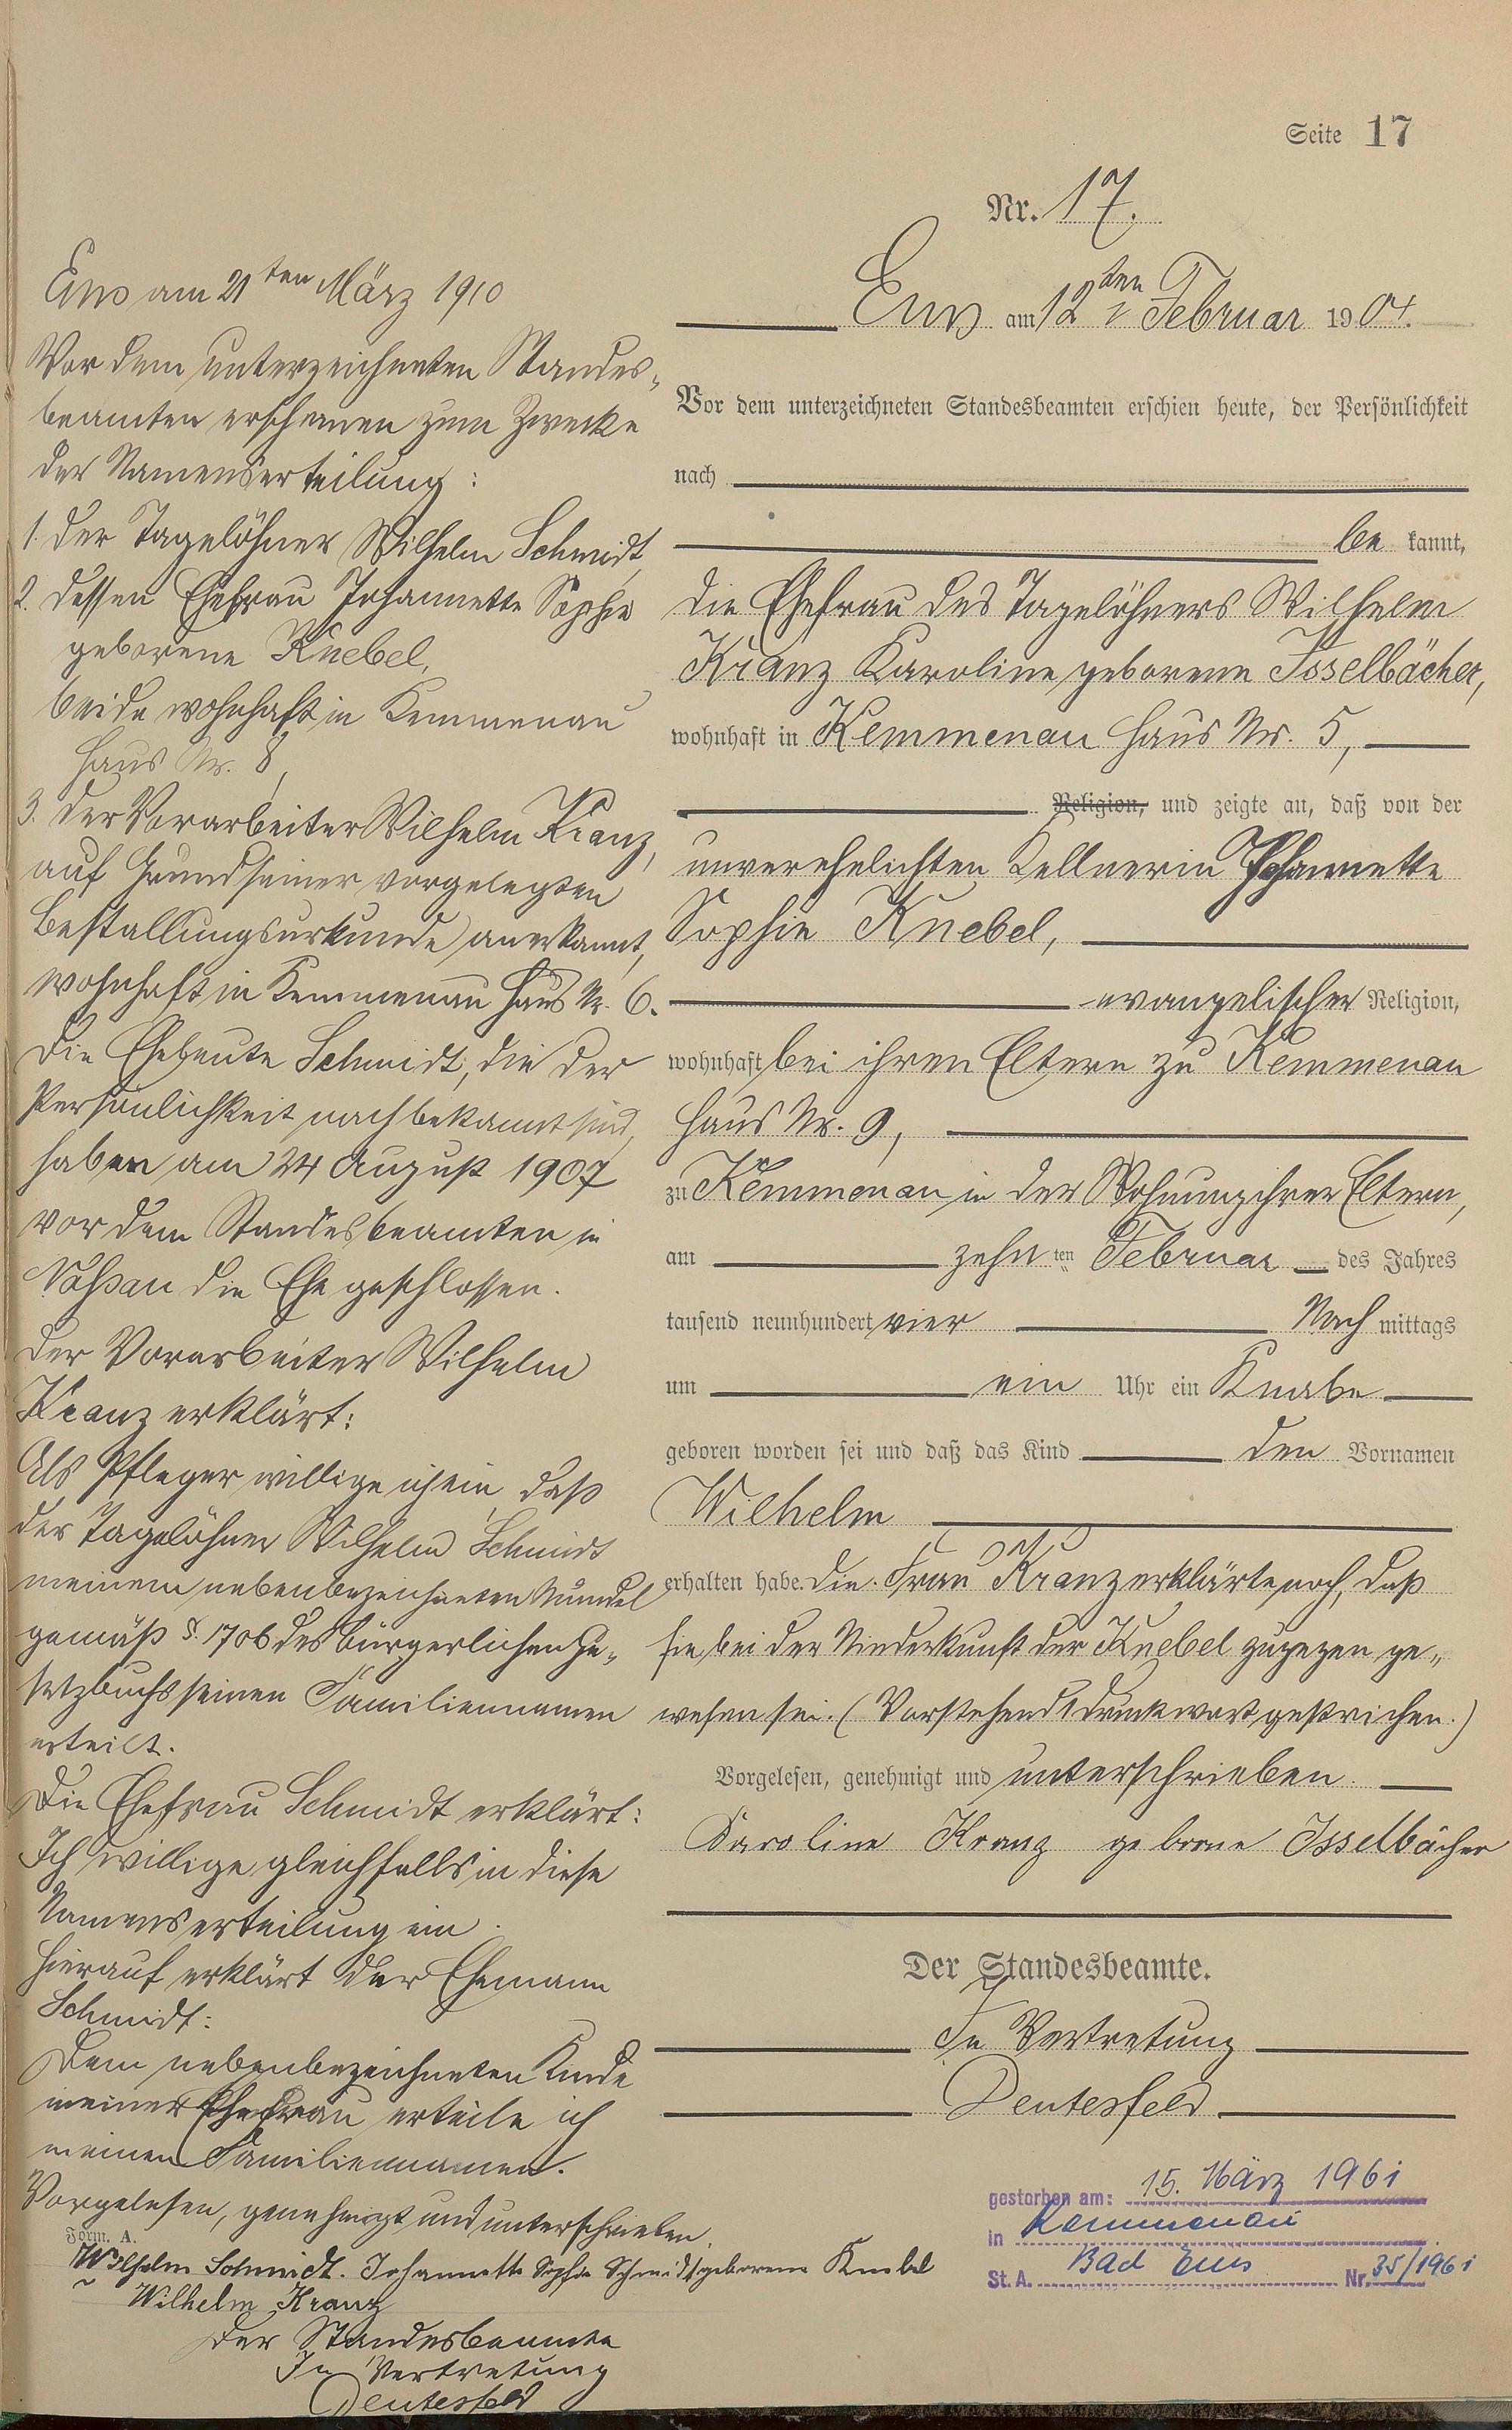 Seite 17
Nr. 17.
Ems am 12ten Februar 1904.
Vor dem unterzeichneten Standesbeamten erschien heute, der Persönlichkeit
nach
be kannt,
die Ehefrau des Tagelöhners Wilhelm
Kranz Karoline geborene Isselbächer,
wohnhaft in Kemmenau Haus Nr. 5,
Religion, und zeigte an, daß von der
unverehelichten Kellnerin Johannette
Sophie Knebel,
evangelischer Religion,
wohnhaft bei ihren Eltern zu Kemmenau
Haus Nr. 9,
zu Kemmenau in der Wohnung ihrer Eltern,
am zehn ten Februar des Jahres
tausend neunhundert vier Nach mittags
um ein Uhr ein Knabe
geboren worden sei und daß das Kind den Vornamen
Wilhelm
erhalten habe. Die Frau Kranz erklärte noch, daß
sie bei der Niederkunft der Knebel zugegen ge„
wesen sei. (Vorstehend 1 Druckwort gestrichen.)
Vorgelesen, genehmigt und unterschrieben.
Karoline Kranz geborne Isselbächer
Der Standesbeamte.
In Vertretung
Deutesfeld
gestorben am: 15. März 1961
in Kemmenau
St. A. Bad Ems Nr. 35/1961
Ems am 21ten März 1910
Vor dem unterzeichneten Standes„
beamten erschienen zum Zwecke
der Namenserteilung:
1. der Tagelöhner Wilhelm Schmidt,
2. dessen Ehefrau Johannette Sophie
geborene Knebel,
beide wohnhaft in Kemmenau
Haus Nr. 8,
3. der Vorarbeiter Wilhelm Kranz,
auf Grund seiner vorgelegten
Bestallungsurkunde anerkannt,
wohnhaft in Kemmenau Haus Nr. 6.
Die Eheleute Schmidt, die der
Persönlichkeit nach bekannt sind,
haben am 24 August 1907
vor dem Standesbeamten in
Nassau die Ehe geschlossen.
Der Vorarbeiter Wilhelm
Kranz erklärt:
Als Pfleger willige ich ein, daß
der Tagelöhner Wilhelm Schmidt
meinem nebenbezeichneten Mündel
gemäß §. 1706 des bürgerlichen Ge„
setzbuchs seinen Familiennamen
erteilt.
Die Ehefrau Schmidt erklärt:
Ich willige gleichfalls in diese
Namenserteilung ein.
Hierauf erklärt der Ehemann
Schmidt:
Dem nebenbezeichneten Kinde
meiner Ehefrau erteile ich
meinen Familiennamen.
Vorgelesen, genehmigt und unterschrieben.
Form. A.
Wilhelm Schmidt. Johannette Sophie Schmidt geborene Knebel
Wilhelm Kranz
Der Standesbeamte
In Vertretung
Deutesfeld